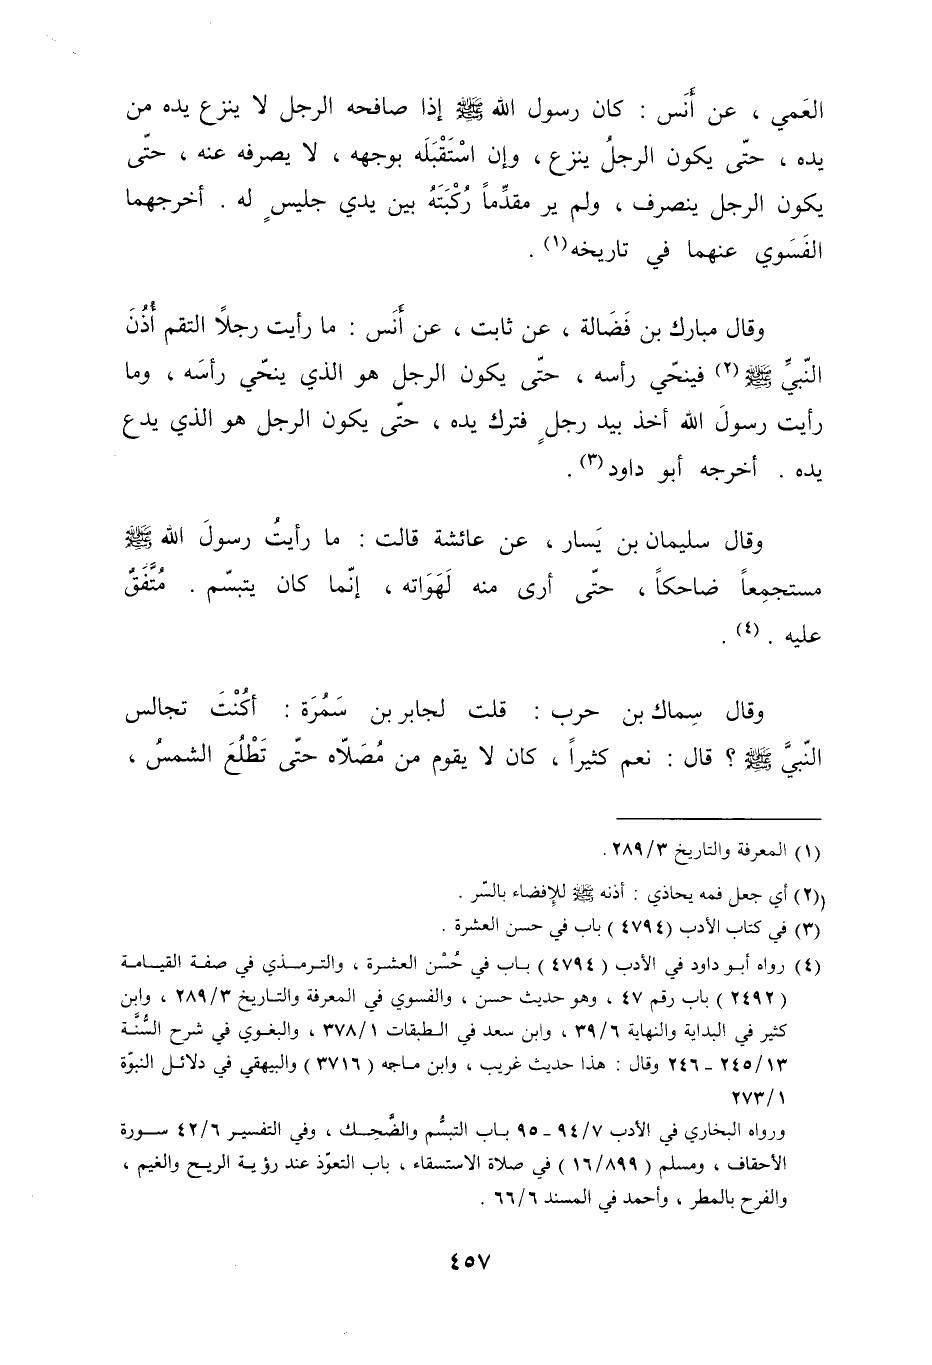 العَمي ، عن أَنَس : كان رسول الله ﷺ إذا صافحه الرجل لا ينزع يده من
يده ، حتّى يكون الرجلُ ينزع ، وإن اسْتَقْبَلَه بوجهه ، لا يصرفه عنه ، حتّى
يكون الرجل ينصرف ، ولم ير مقدِّماً رُكْبَتَهُ بين يدي جليسٍ له . أخرجهما
الفَسَوي عنهما في تاريخه(١) .
وقال مبارك بن فَضَالة ، عن ثابت ، عن أَنَس : ما رأيت رجلاً التقم أُذُنَ
النّبيِّ ﷺ(٢) فينحّي رأسه ، حتّى يكون الرجل هو الذي ينحّي رأسَه ، وما
رأيت رسولَ الله أخذ بيد رجلٍ فترك يده ، حتّى يكون الرجل هو الذي يدع
يده . أخرجه أبو داود(٣) .
وقال سليمان بن يَسار ، عن عائشة قالت : ما رأيتُ رسولَ الله ﷺ
مستجمِعاً ضاحكاً ، حتّى أرى منه لَهَوَاته ، إنّما كان يتبسّم . مُتَّفَقٌ
عليه . (٤) .
وقال سِماك بن حرب : قلت لجابر بن سَمُرَة : أكُنْتَ تجالس
النّبيَّ ﷺ ؟ قال : نعم كثيراً ، كان لا يقوم من مُصَلّاه حتّى تَطْلُعَ الشمسُ ،
(١) المعرفة والتاريخ ٢٨٩/٣ .
(٢) أي جعل فمه يحاذي : أذنه ﷺ للإفضاء بالسّر .
(٣) في كتاب الأدب (٤٧٩٤) باب في حسن العشرة .
(٤) رواه أبو داود في الأدب (٤٧٩٤) باب في حُسْن العشرة ، والترمذي في صفة القيامة
(٢٤٩٢) باب رقم ٤٧ ، وهو حديث حسن ، والفسوي في المعرفة والتاريخ ٢٨٩/٣ ، وابن
كثير في البداية والنهاية ٣٩/٦ ، وابن سعد في الطبقات ٣٧٨/١ ، والبغوي في شرح السُّنَّة
٢٤٥/١٣ - ٢٤٦ وقال : هذا حديث غريب ، وابن ماجه (٣٧١٦) والبيهقي في دلائل النبوّة
٢٧٣/١
ورواه البخاري في الأدب ٩٤/٧ - ٩٥ باب التبسُّم والضَّحِك ، وفي التفسير ٤٢/٦ سورة
الأحقاف ، ومسلم (١٦/٨٩٩) في صلاة الاستسقاء ، باب التعوّذ عند رؤية الريح والغيم ،
والفرح بالمطر ، وأحمد في المسند ٦٦/٦ .
٤٥٧